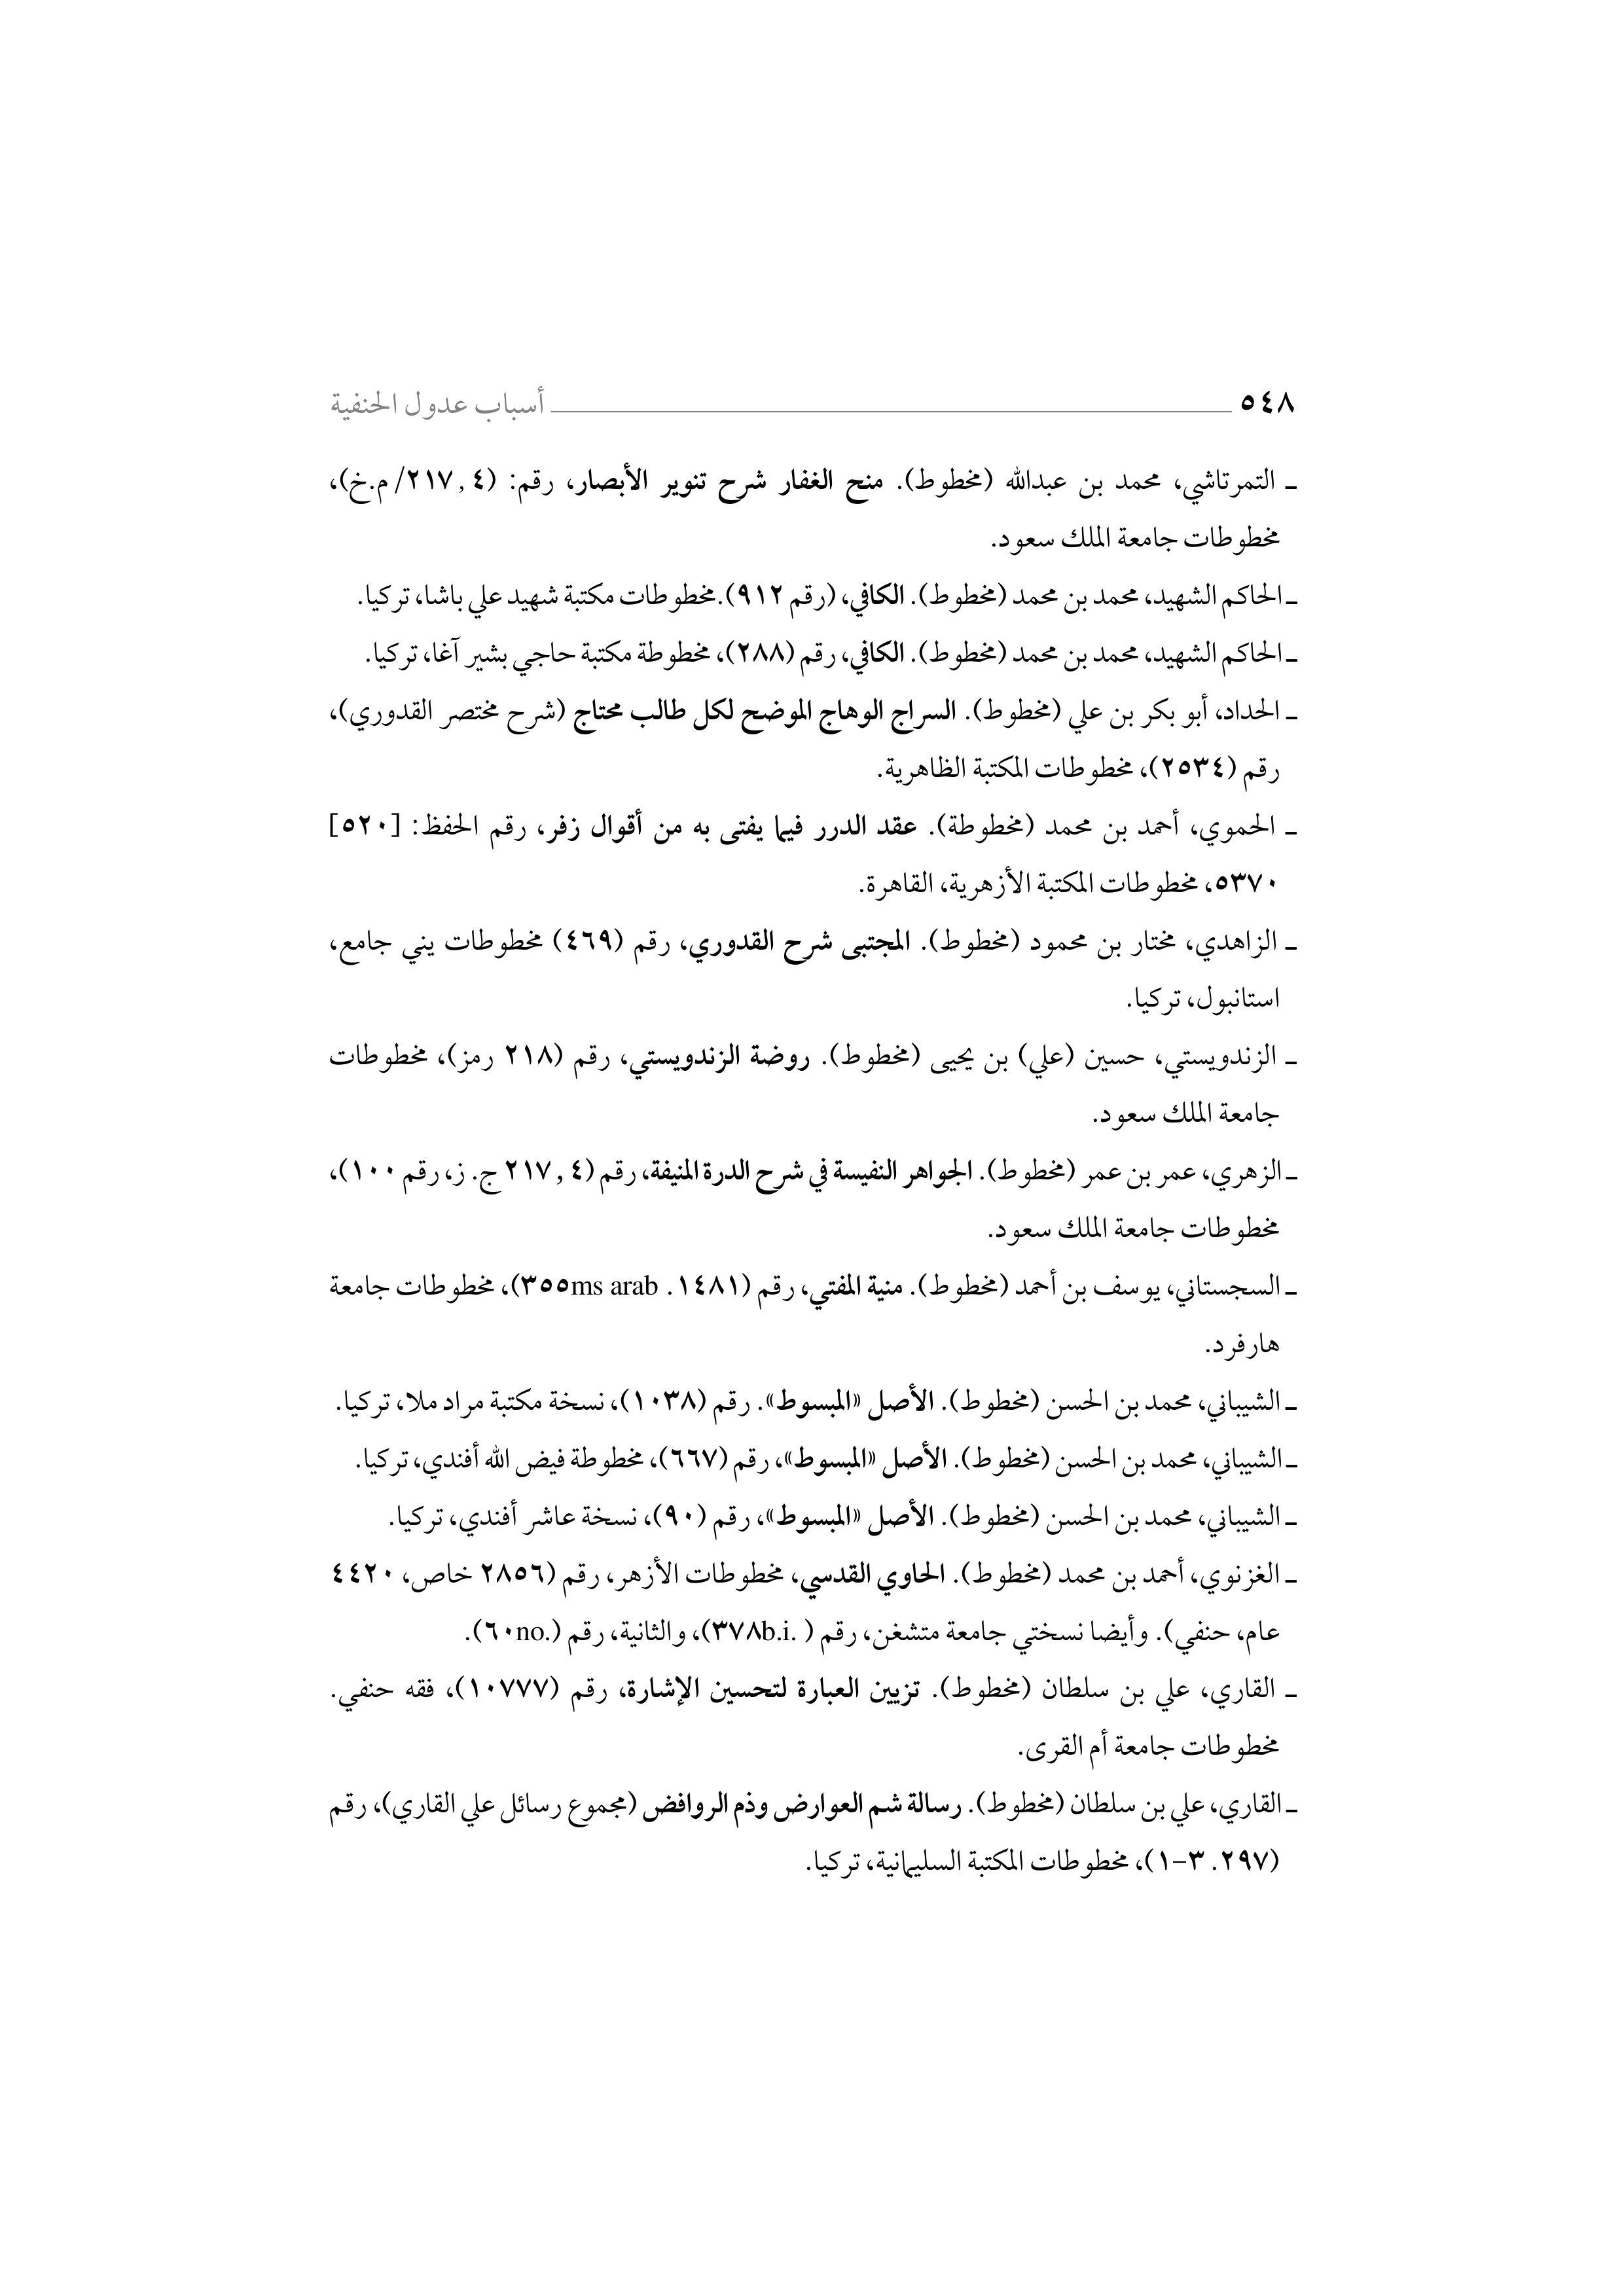 ٥٤٨ أسباب عدول الحنفية
ـ التمرتاشي، محمد بن عبدالله (مخطوط). منح الغفار شرح تنوير الأبصار، رقم: (٢١٧,٤/ م.خ)،
مخطوطات جامعة الملك سعود.
ـ الحاكم الشهيد، محمد بن محمد (مخطوط). الكافي، (رقم ٩١٢).مخطوطات مكتبة شهيد علي باشا، تركيا.
ـ الحاكم الشهيد، محمد بن محمد (مخطوط). الكافي، رقم (٢٨٨)، مخطوطة مكتبة حاجي بشير آغا، تركيا.
ـ الحداد، أبو بكر بن علي (مخطوط). السراج الوهاج الموضح لكل طالب محتاج (شرح مختصر القدوري)،
رقم (٢٥٣٤)، مخطوطات المكتبة الظاهرية.
ـ الحموي، أحمد بن محمد (مخطوطة). عقد الدرر فيما يفتى به من أقوال زفر، رقم الحفظ: [٥٢٠]
٥٣٧٠، مخطوطات المكتبة الأزهرية، القاهرة.
ـ الزاهدي، مختار بن محمود (مخطوط). المجتبى شرح القدوري، رقم (٤٦٩) مخطوطات يني جامع،
استانبول، تركيا.
ـ الزندويستي، حسين (علي) بن يحيى (مخطوط). روضة الزندويستي، رقم (٢١٨ رمز)، مخطوطات
جامعة الملك سعود.
ـ الزهري، عمر بن عمر (مخطوط). الجواهر النفيسة في شرح الدرة المنيفة، رقم (٢١٧,٤ ج. ز، رقم ١٠٠)،
مخطوطات جامعة الملك سعود.
ـ السجستاني، يوسف بن أحمد (مخطوط). منية المفتي، رقم (١٤٨١. ms arab٣٥٥)، مخطوطات جامعة
هارفرد.
ـ الشيباني، محمد بن الحسن (مخطوط). الأصل «المبسوط». رقم (١٠٣٨)، نسخة مكتبة مراد ملا، تركيا.
ـ الشيباني، محمد بن الحسن (مخطوط). الأصل «المبسوط»، رقم (٦٦٧)، مخطوطة فيض الله أفندي، تركيا.
ـ الشيباني، محمد بن الحسن (مخطوط). الأصل «المبسوط»، رقم (٩٠)، نسخة عاشر أفندي، تركيا.
ـ الغزنوي، أحمد بن محمد (مخطوط). الحاوي القدسي، مخطوطات الأزهر، رقم (٢٨٥٦ خاص، ٤٤٢٠
عام، حنفي). وأيضا نسختي جامعة متشغن، رقم ( .b.i٣٧٨)، والثانية، رقم (.no٦٠).
ـ القاري، علي بن سلطان (مخطوط). تزيين العبارة لتحسين الإشارة، رقم (١٠٧٧٧)، فقه حنفي.
مخطوطات جامعة أم القرى.
ـ القاري، علي بن سلطان (مخطوط). رسالة شم العوارض وذم الروافض (مجموع رسائل علي القاري)، رقم
(٢٩٧. ٣-١)، مخطوطات المكتبة السليمانية، تركيا.